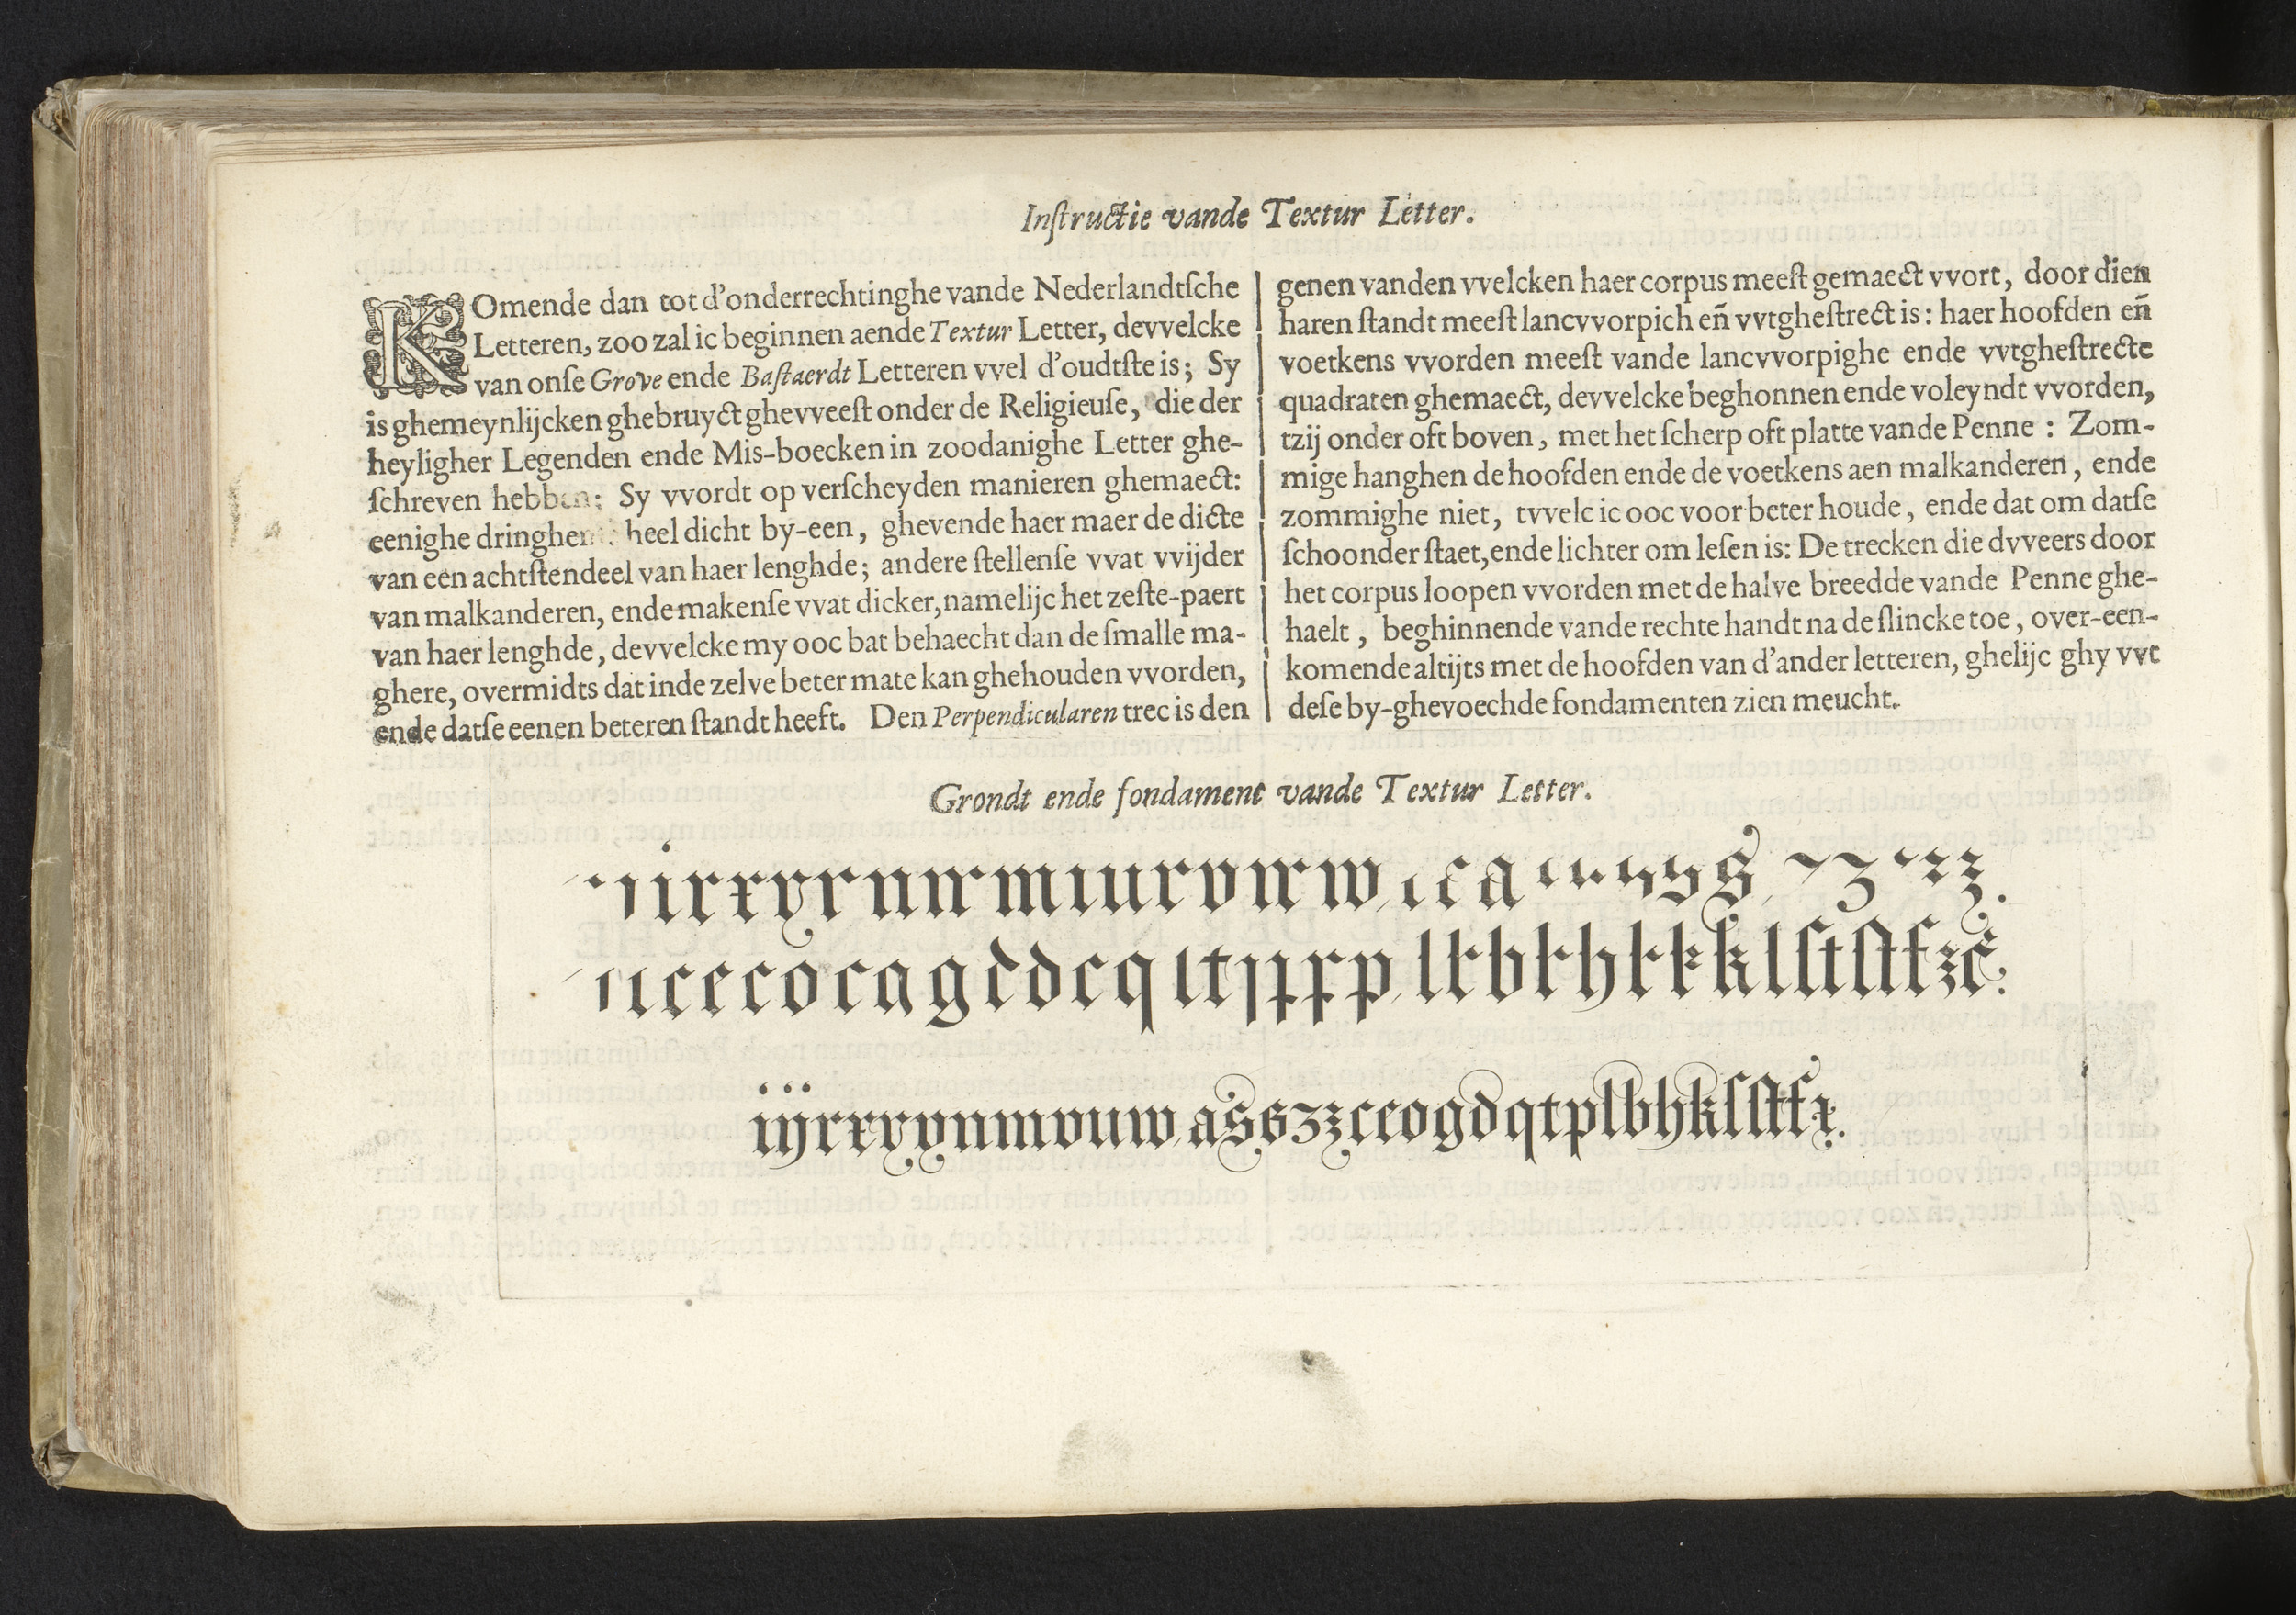 Inſtructie vande Textur Letter.
KOmende dan tot d'onderrechtinghe vande Nederlandtſche
Letteren, zoo zal ic beginnen aende Textur Letter, devvelcke
van onſe Grove ende Baſtaerdt Letteren vvel d'oudtſte is; Sy
is ghemeynlijcken ghebruyct ghevveeſt onder de Religieuſe, die der
heyligher Legenden ende Mis-boecken in zoodanighe Letter ghe-
ſchreven hebben; Sy vvordt op verſcheyden manieren ghemaect:
eenighe dringhen heel dicht by-een, ghevende haer maer de dicte
van een achtſtendeel van haer lenghde; andere ſtellenſe vvat vvijder
van malkanderen, ende makenſe vvat dicker, namelijc het zeſte-paert
van haer lenghde, devvelcke my ooc bat behaecht dan de ſmalle ma-
ghere, overmidts dat inde zelve beter mate kan ghehouden vvorden,
ende datſe eenen beteren ſtandt heeft. Den Perpendicularen trec is den
genen vanden vvelcken haer corpus meeſt gemaect vvort, door dien
haren ſtandt meeſt lancvvorpich eñ vvtgheſtrect is: haer hoofden eñ
voetkens vvorden meeſt vande lancvvorpighe ende vvtgheſtrecte
quadraten ghemaect, devvelcke beghonnen ende voleyndt vvorden,
tzij onder oft boven, met het ſcherp oft platte vande Penne: Zom-
mige hanghen de hoofden ende de voetkens aen malkanderen, ende
zommighe niet, tvvelc ic ooc voor beter houde, ende dat om datſe
ſchoonder ſtaet, ende lichter om leſen is: De trecken die dvveers door
het corpus loopen vvorden met de halve breedde vande Penne ghe-
haelt, beghinnende vande rechte handt na de ſlincke toe, over-een-
komende altijts met de hoofden van d'ander letteren, ghelijc ghy vvt
deſe by-ghevoechde fondamenten zien meucht.
Grondt ende fondament vande Textur Letter.